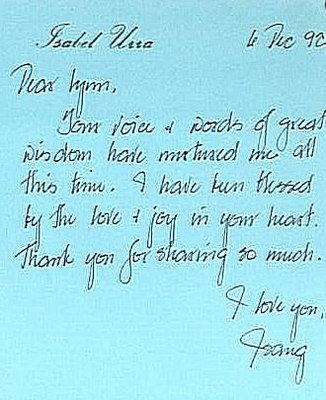 Isabel Urra 4 Dec 92
Dear Lynn,
Your voice & words of great
wisdom have nurtured me all
this time. I have been blessed
by the love & joy in your heart.
Thank you for sharing so much.
I love you,